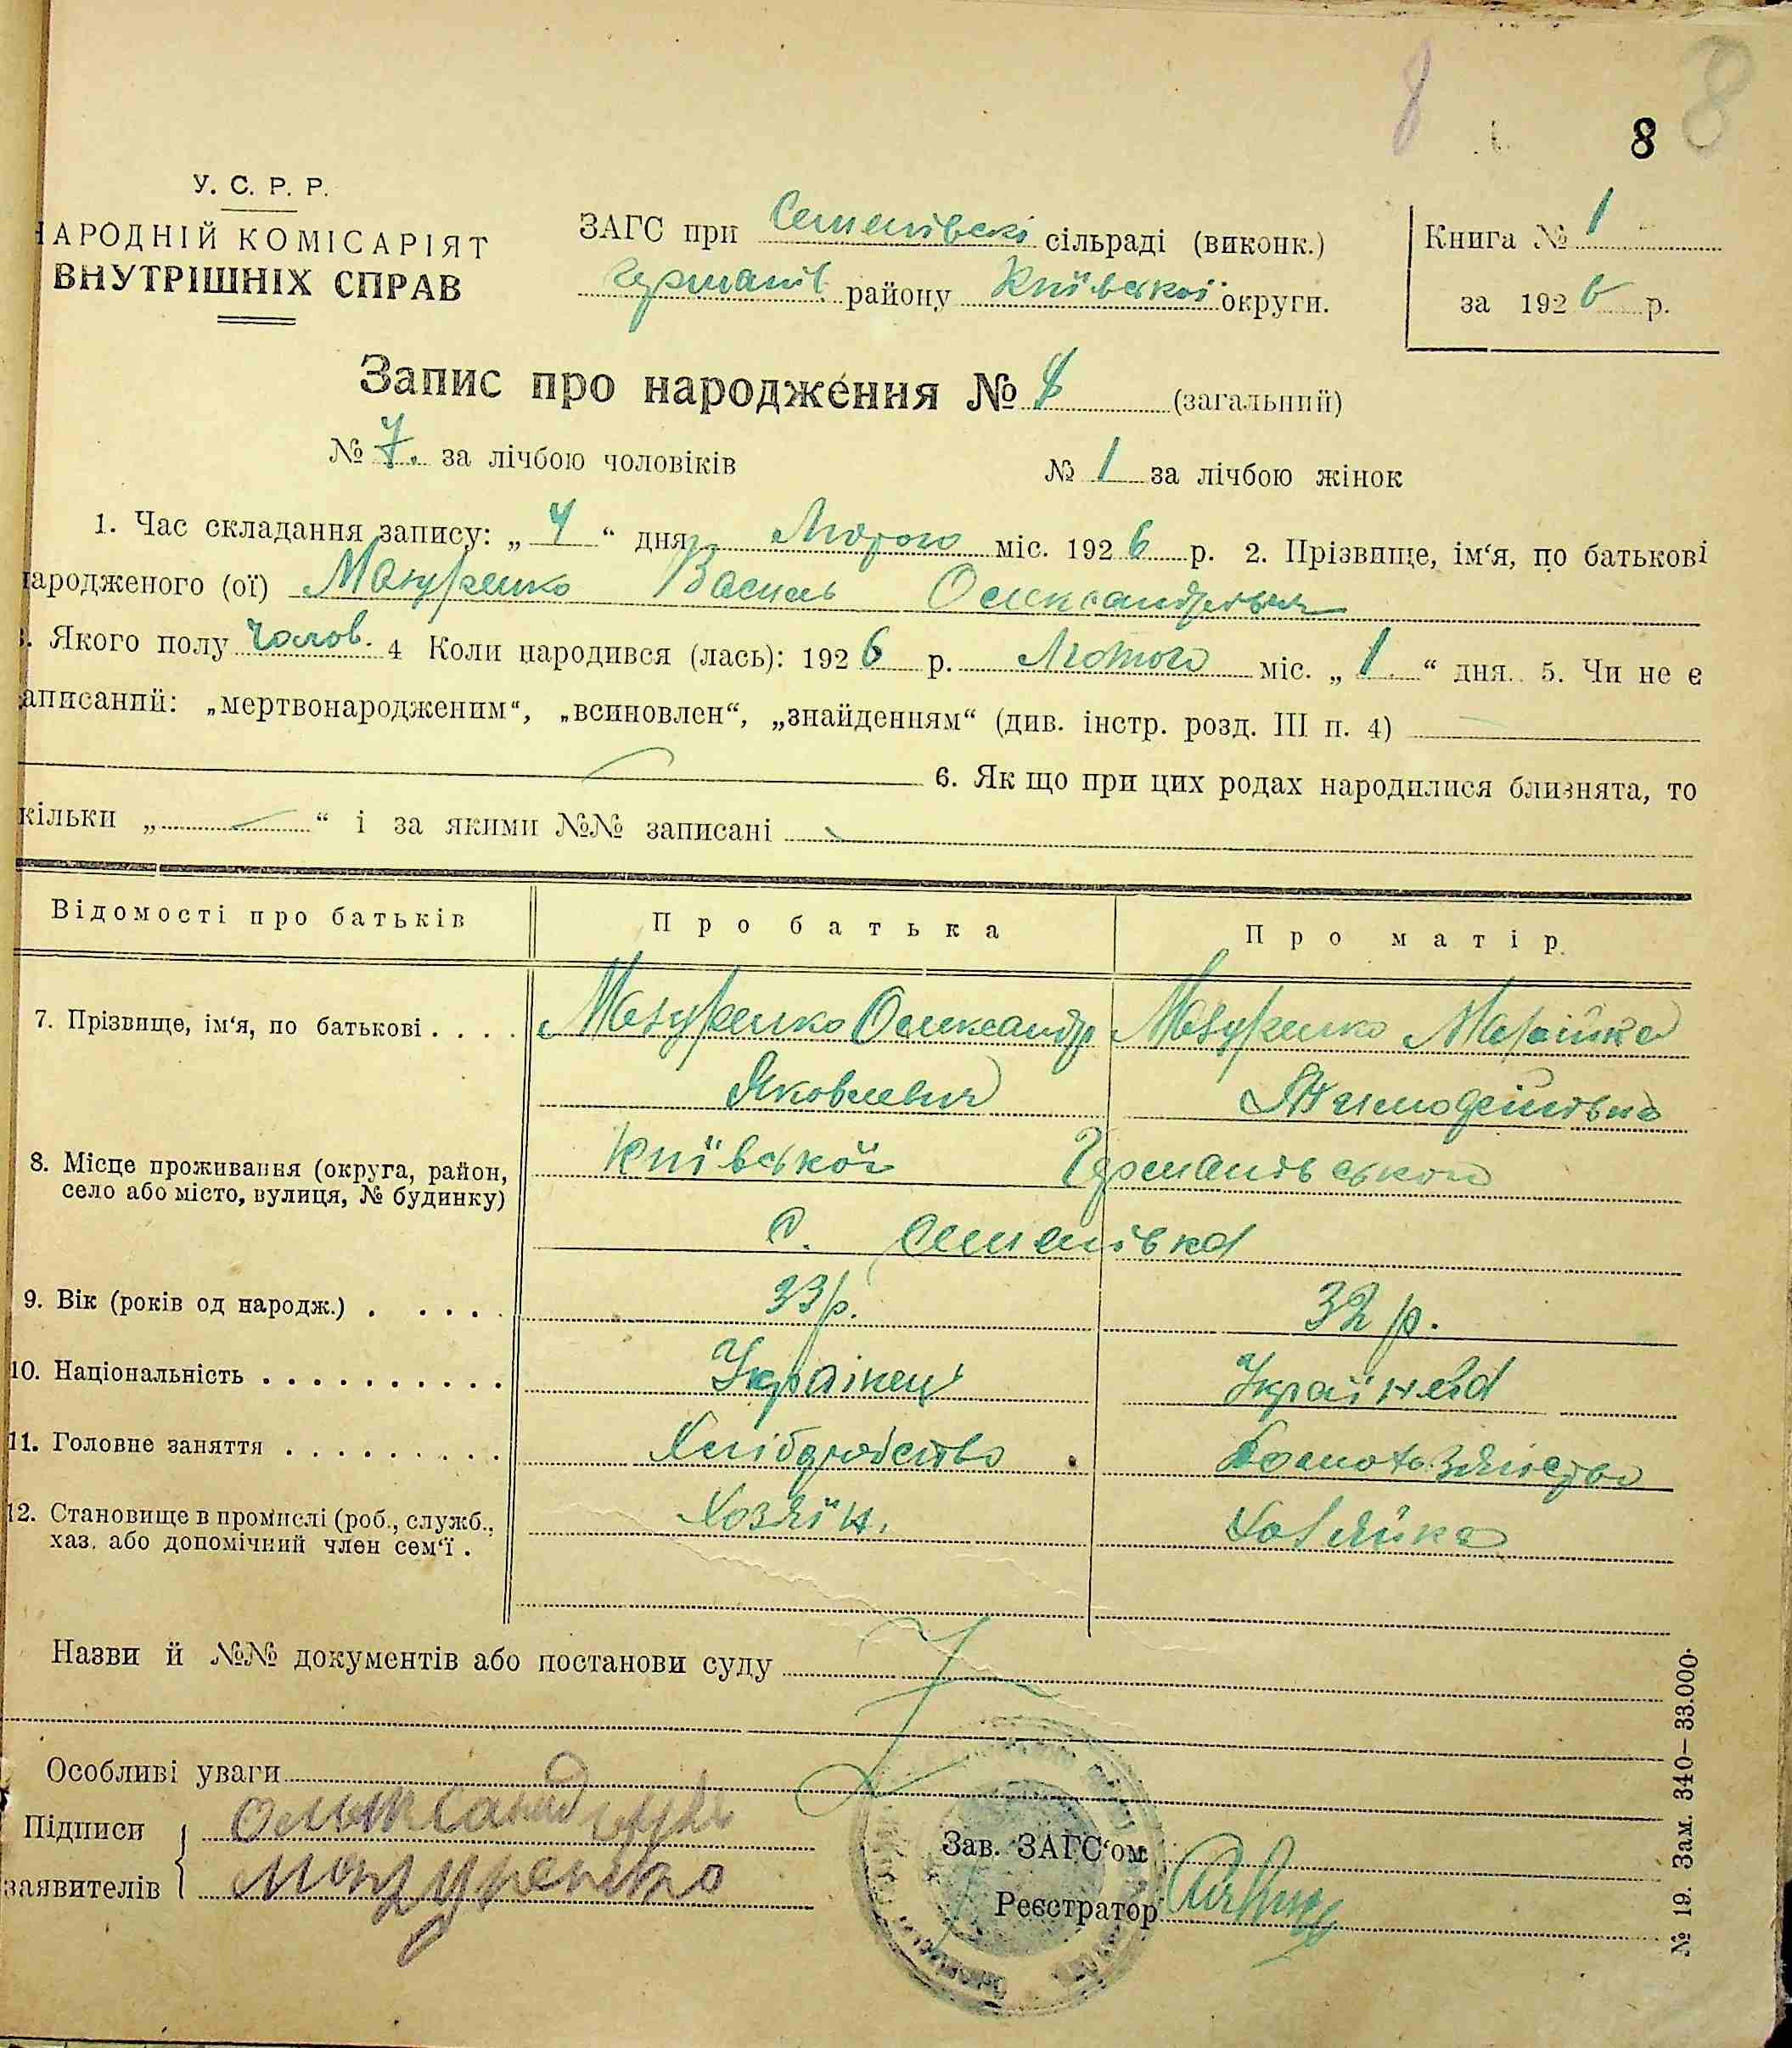 8 8
8
У. С. Р. Р.
НАРОДНІЙ КОМІСАРІЯТ
ВНУТРІШНІХ СПРАВ
ЗАГС при Семенівскі сільраді (виконк.)
Германів. району Київської округи.
Книга № 1
за 1926 р.
Запис про народження № 8 (загальний)
№ 7. за лічбою чоловіків № 1 за лічбою жінок
1. Час складання запису: „ 4 “ дня Лютого міс. 1926 р. 2. Прізвище, ім‘я, по батькові
народженого (ої) Мазуренко Василь Олександрович
3. Якого полу Чолов. 4 Коли народився (лась): 1926 р. Лютого міс. „ 1. “ дня. 5. Чи не є
записаний: „мертвонародженим“, „всиновлен“, „знайденням“ (див. інстр. розд. III п. 4)
6. Як що при цих родах народилися близнята, то
кільки „ “ і за якими №№ записані
Відомості про батьків Про батька Про матір.
7. Прізвище, ім‘я, по батькові . . . . Мазуренко Олександр Мазуренко Марійка
Яковлевич Тимофіївна
8. Місце проживання (округа, район, Київської Германівського
село або місто, вулиця, № будинку)
с. Семенівка
9. Вік (років од народж.) . . . . . 33 р. 32 р.
10. Національність . . . . . . . . . . Українець Українка
11. Головне заняття . . . . . . . . . Хліборобство Домохозяйство
12. Становище в промислі (роб., служб., Хозяїн. Хозяйка
хаз. або допомічний член сем‘ї .
Назви й №№ документів або постанови суду
Особливі уваги
Підписи
заявителів
Мазуренко
Зав. ЗАГС‘ом
Реєстратор
№ 19. Зам. 340–33.000.